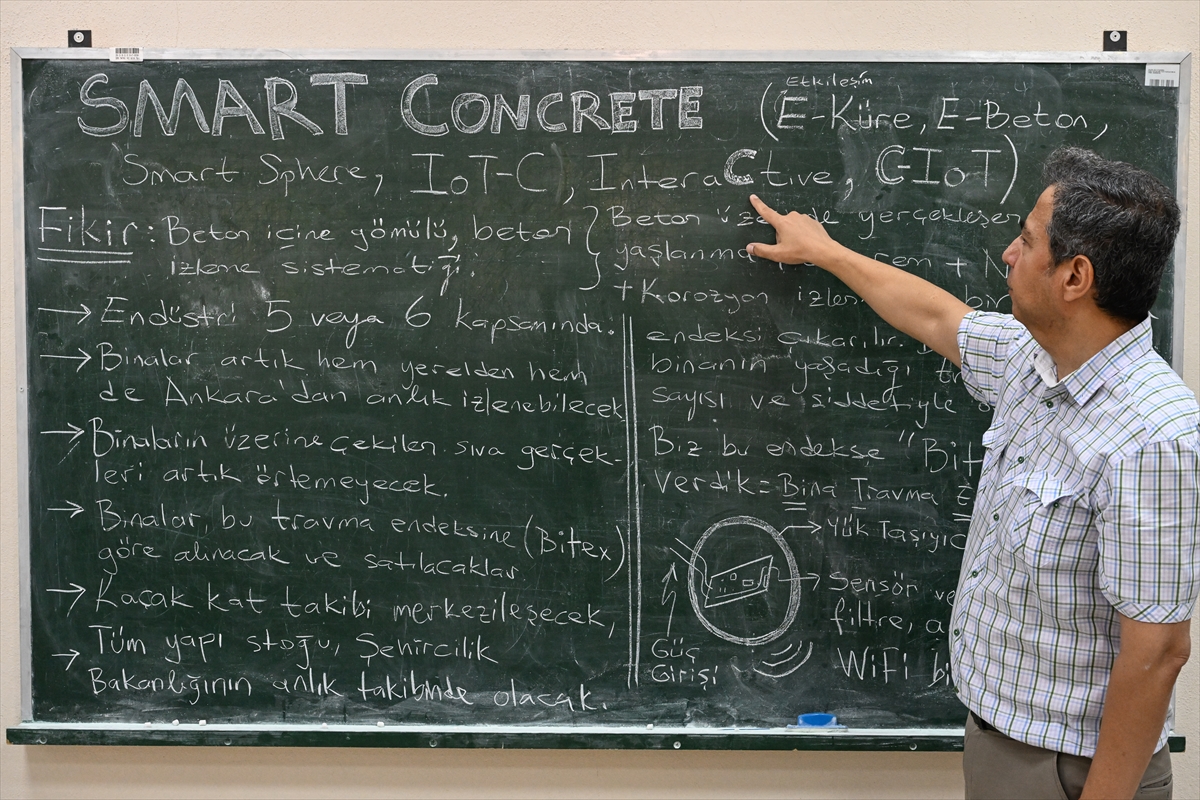 SMART CONCRETE
Etkileşim
(E-Küre, E-Beton,
Smart Sphere, IoT-C, InteraCtive, C-IoT)
Fikir: Beton içine gömülü, beton
izleme sistematiği.
Beton yerçekleşen
yaşlanma + N
+ Korozyon bir
endeksi çıkarılır.
binanın yaşadığı
sayısı ve şiddetiyle
Biz bu endekse "Bit
verdik = Bina Travma E
→ Endüstri 5 veya 6 kapsamında.
→ Binalar artık hem yerelden hem
de Ankara'dan anlık izlenebilecek
→ Binaların üzerine çekilen sıva gerçek-
leri artık örtemeyecek.
→ Binalar, bu travma endeksine (Bitex)
göre alınacak ve satılacaklar.
→ Kaçak kat takibi merkezileşecek,
→ Tüm yapı stoğu, Şehircilik
Bakanlığının anlık takibinde olacak.
Yük Taşıyıc
Sensör ve
filtre, a
WiFi bi
Güç
Girişi